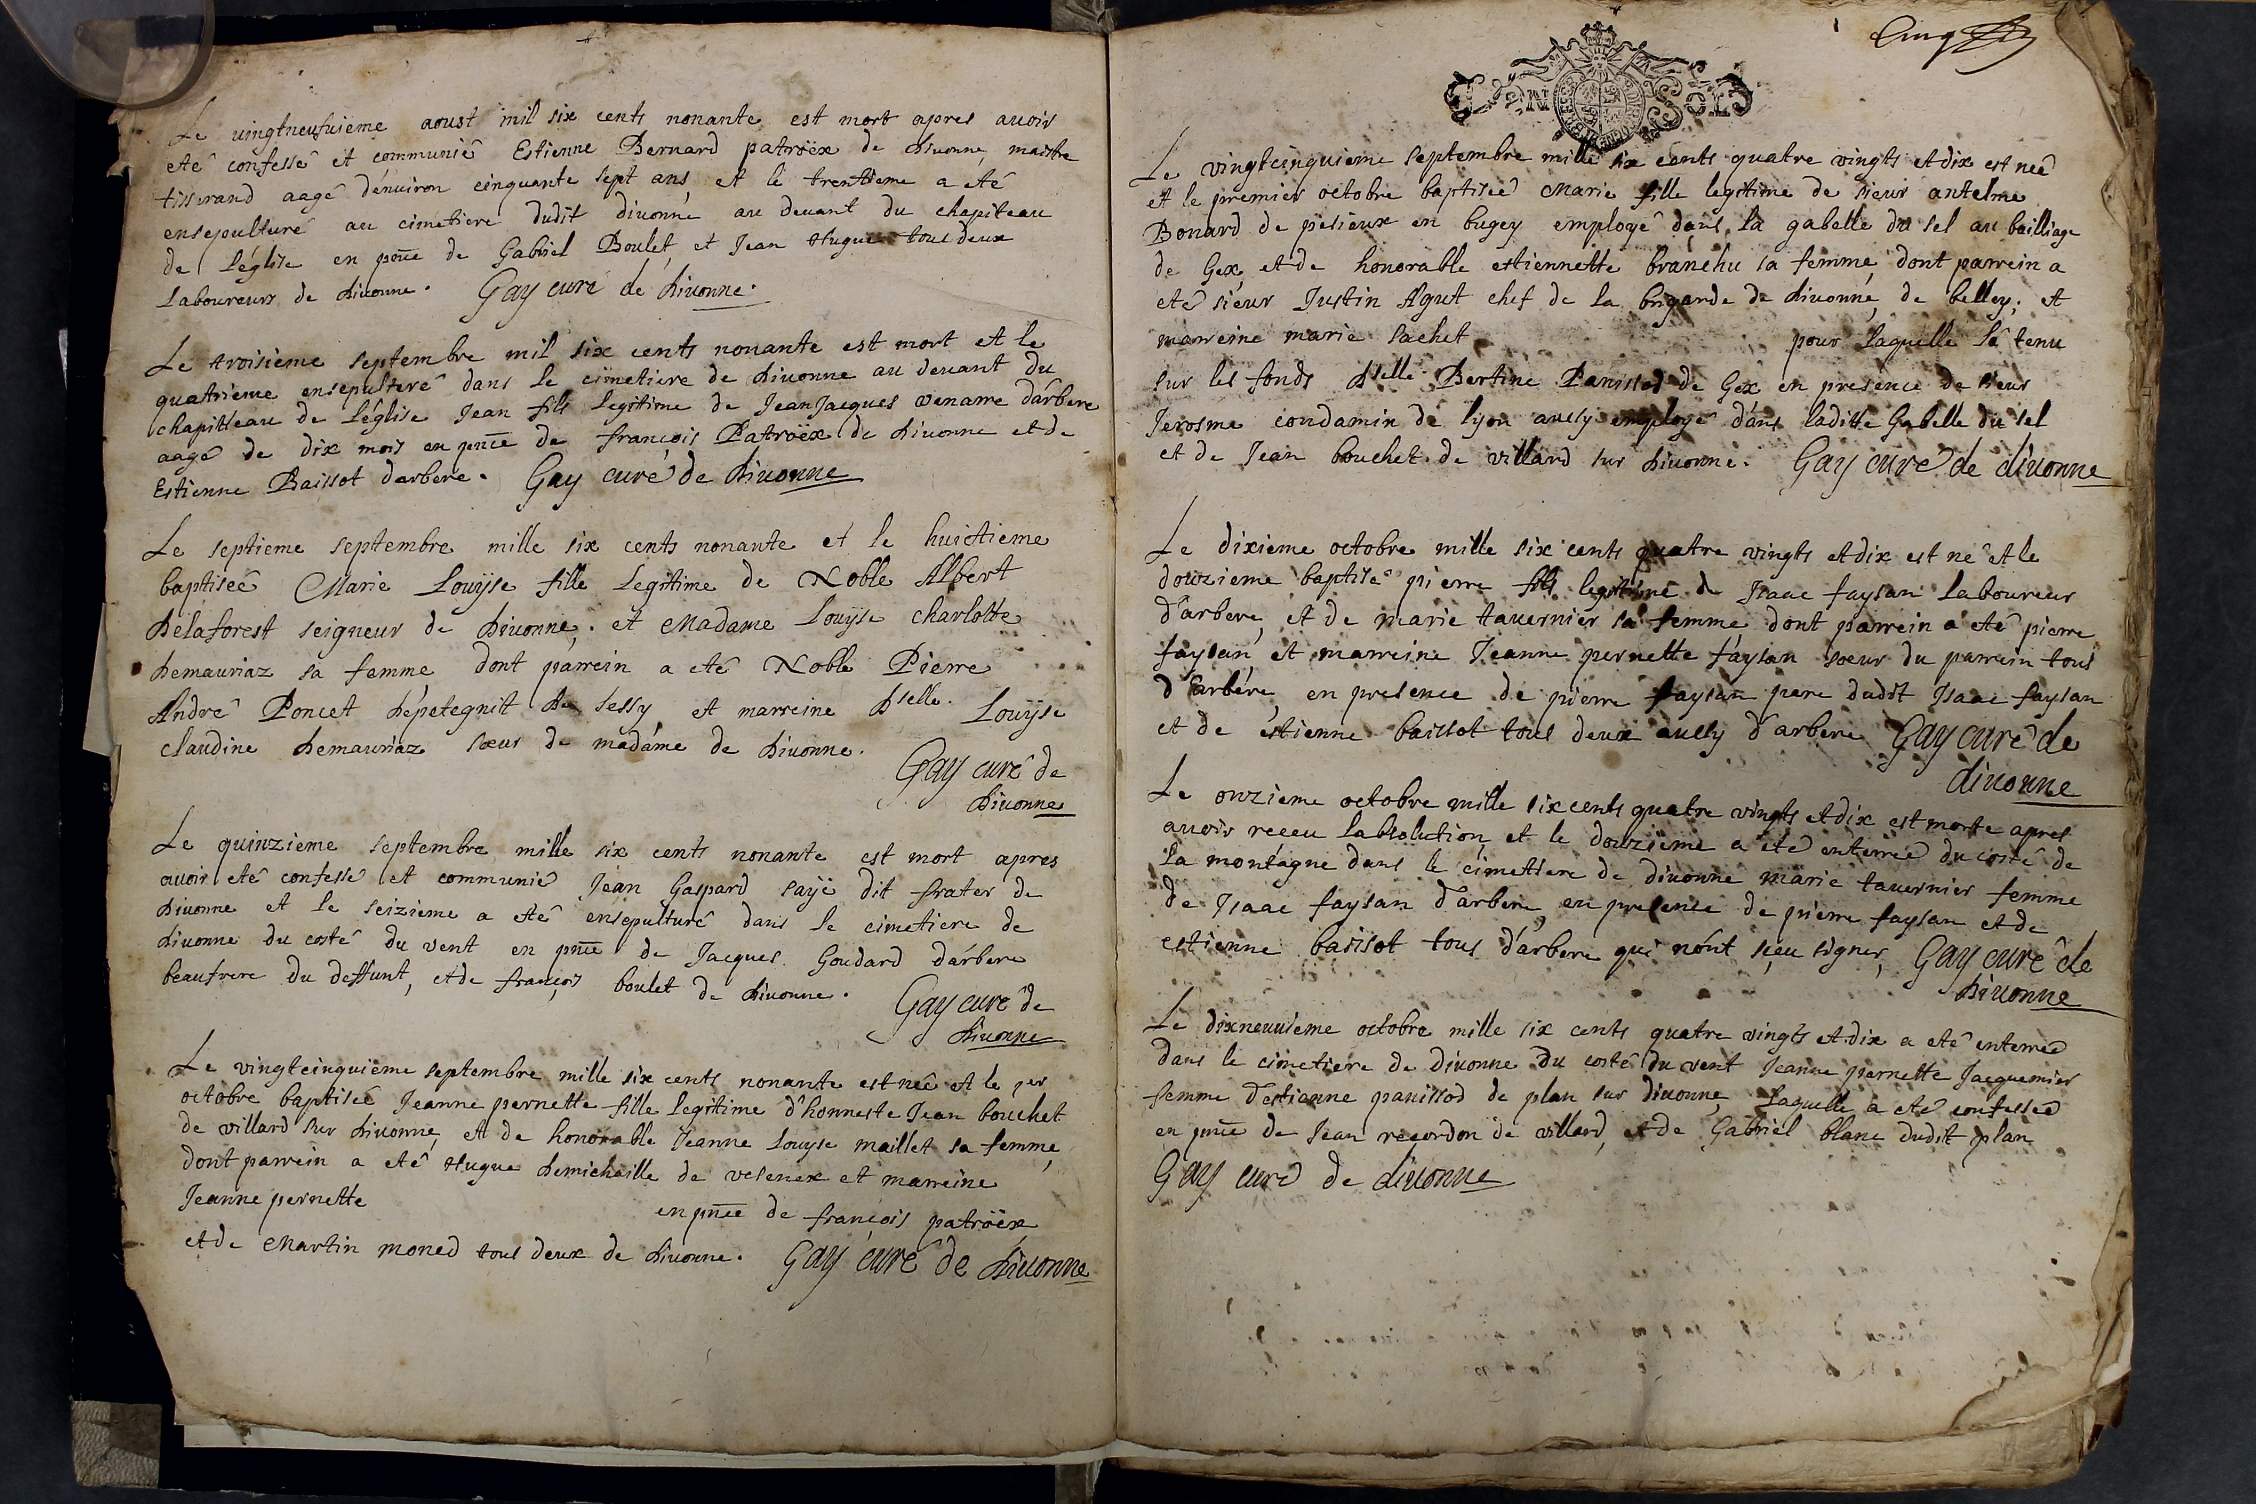 Le vingtneufuieme aoust mil six cents nonante est mort apres auoir
eté confessé et communié Estienne Bernard patroëx de diuonne, maistre
tisserand aagé dénuiron cinquante sept ans, et le trentieme a eté
ensepulturé au cimetiere dudit diuonne au deuant du chapiteau
de léglise en pñce de Gabriel Boulet, et Jean Hugue tous deux
Laboureurs de diuonne. Gay curé de diuonne.
Le troisieme septembre mil six cents nonante est mort et le
quatrieme ensepulturé dans le cimetiere de diuonne au deuant du
chapitteau de léglise Jean fils legitime de JeanJacques venarre dárbere
aagé de dix mois en pñce de françois Patroëx de diuonne et de
Estienne Baissot darbere. Gay curé de diuonne
Le septieme septembre mille six cents nonante et le huictieme
baptiseé Marie Louÿse fille Legitime de Noble Albert
Délaforest seigneur de diuonne, et Madame Louÿse charlotte
Demauriaz sa femme dont parrein a eté Noble Pierre
André Poncet dépetegnit de sessy et marreine dselle. Louÿse
claudine demauriaz sœur de madáme de diuonne.
Gay curé de
diuonne
Le quinzieme septembre mille six cents nonante est mort apres
auoir eté confessé et communié Jean Gaspard sayë dit frater de
diuonne et le seizieme a eté ensepulturé dans le cimetiere de
diuonne du costé du vent en pñce de Jacques Goudard dárbere
beaufrere du deffunt, et de françois boulet de diuonne.
Gay curé de
diuonne
Le vingtcinquieme septembre mille six cents nonante est neé et le per
octobre baptiseé Jeanne pernette fille legitime d'honneste Jean bouchet
de villard sur diuonne, et de honorable Jeanne Louyse maillet sa femme,
dont parrein a eté Hugue demichaille de vesenex et marreine
Jeanne pernette en pñce de françois patroëx
et de Martin moned tous deux de diuonne. Gay curé de diuonne
Cinq
UN SOL
Le vingtcinquieme septembre mille six cents quatre vingts et dix est neé
et le premier octobre baptiseé Marie fille legitime de sieur antelme
Bonard de pesieux en bugey employé dans la gabelle du sel au bailliage
de Gex et de honorable estiennette branchu sa femme, dont parrein a
eté sieur Justin Agut chef de la brigande de diuonne, de belley, et
marreine marie sachet pour laquelle lá tenu
sur les fonds dselle Bertine Panissod de Gex en presence de sieur
Jerosme condamin de lyon aussy employé dans laditte Gabelle du sel
et de Jean bouchet de villard sur diuonne. Gay curé de diuonne
Le dixieme octobre mille six cents quatre vingts et dix est né et le
douzieme baptisé pierre fils legitime de Isaac faysan Laboureur
d'arbere, et de marie tauernier sa femme dont parrein a eté pierre
faysan, et marreine Jeanne pernette faysan sœur du parrein tous
d'arbére, en presence de pierre faysan pere dudit Isaac faysan
et de estienne baissot tous deux aussy d'arbere Gay curé de
diuonne
Le onzieme octobre mille six cents quatre vingts et dix est morte apres
auoir receu labsolution, et le douzieme a eté enterreé du costé de
la montagne dans le cimettiere de diuonne marie tauernier femme
de Isaac faysan d'arbere, en presence de pierre faysan et de
estienne baissot tous d'arbere qui nónt sceu signer, Gay curé de
diuonne
Le dixneuuieme octobre mille six cents quatre vingts et dix a eté enterreé
dans le cimetiere de diuonne du costé du vent Jeanne pernette Jacquemier
femme d'estienne panissod de plan sur diuonne, Laquelle a eté confesseé
en pñce de Jean regordon de villard, et de Gabriel blanc dudit plan
Gay curé de diuonne